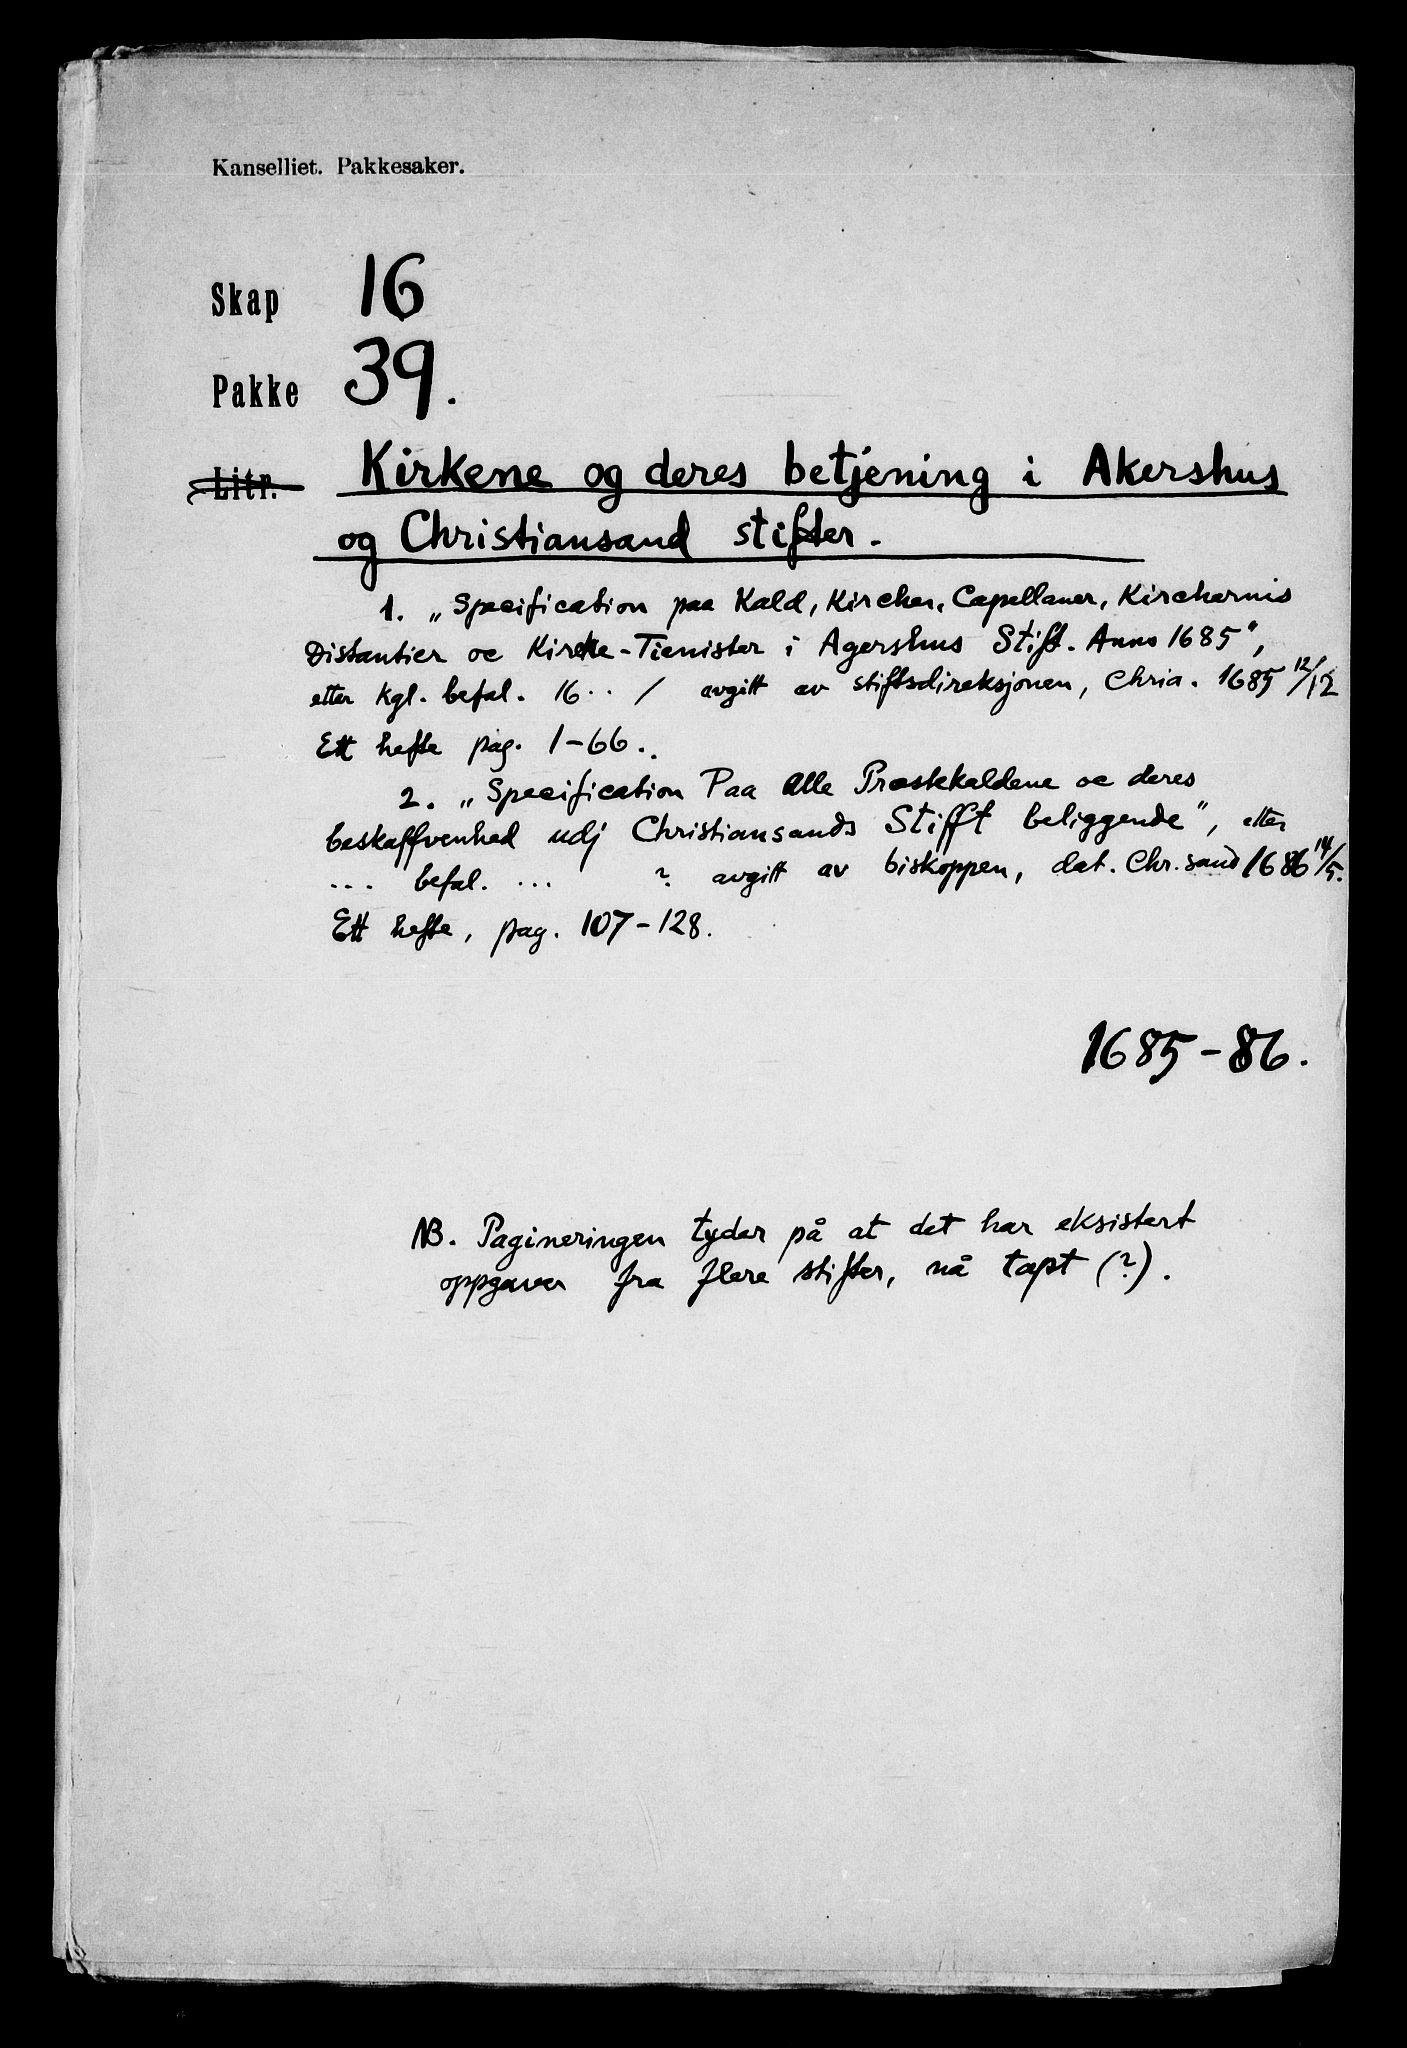 Kanselliet. Pakkesaker.
Skap 16
Pakke 39.
Litr. Kirkene og deres betjening i Akershus
og Christiansand stifter.
1. „Specification paa Kald, Kircher, Capellaner, Kirchernis
Distantier oc Kirke-Tienister i Agershus Stift. Anno 1685",
etter kgl. befal. 16.. / avgitt av stiftsdireksjonen, Chria. 1685 12/12
Ett hefte pag. 1-66.
2. „Specification Paa Alle Præstekaldene oc deres
beskaffvenhed udj Christiansands Stifft beliggende", etter
... befal. ... ? avgitt av biskoppen, dat. Chr.sand 1686 14/5.
Ett hefte, pag. 107-128.
1685-86.
NB. Pagineringen tyder på at det har eksistert
oppgaver fra flere stifter, nå tapt (?).